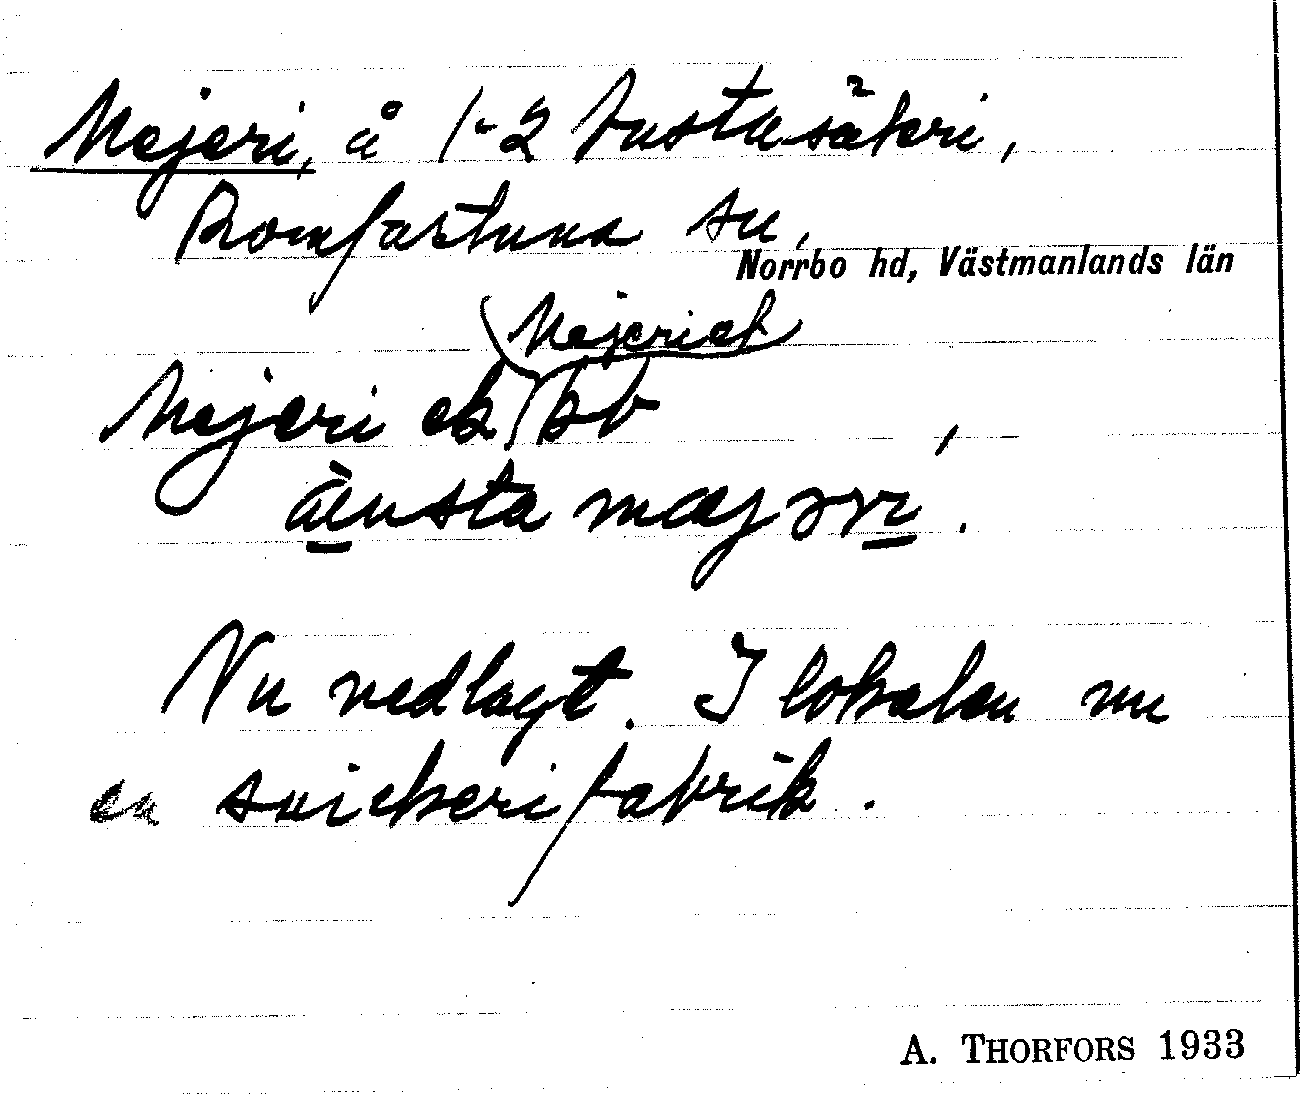 Mejeri, å 1-2 Tusta säteri,
Romfartuna sn,
Norrbo hd, Västmanlands län
Mejeriet
Mejeri ek bv ,
mæjəri.
Nu nedlagt. I lokalen nu
en snickerifabrik.
A. THORFORS 1933